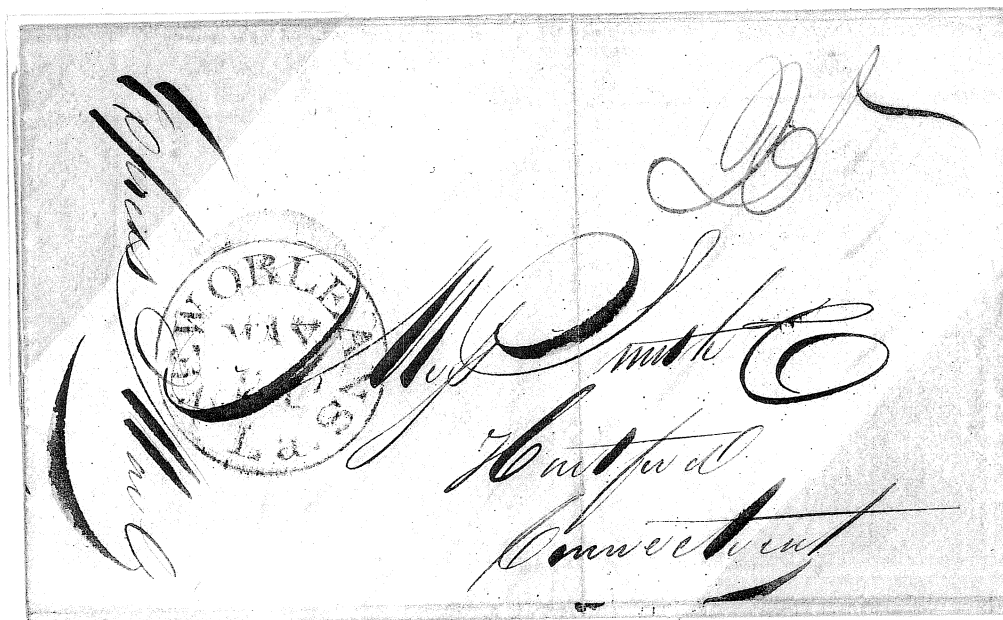 Express Mail
NEW ORLEANS
MAY
La.
Smith
Hartford
Connecticut